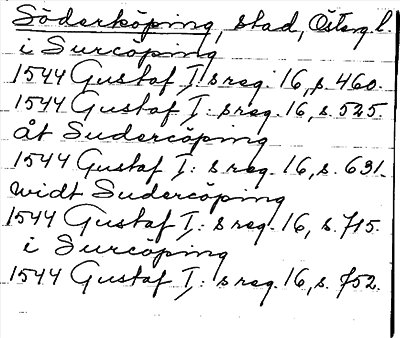 Söderköping, stad, Österg l.
i Surcöping
1544 Gustaf I:s reg. 16, s. 460.
1544 Gustaf I:s reg. 16, s. 525.
åt Sudercöping
1544 Gustaf I:s reg. 16, s. 631.
widt Sudercöping
1544 Gustaf I:s reg. 16, s. 715.
i Surcöping
1544 Gustaf I:s reg. 16, s. 752.